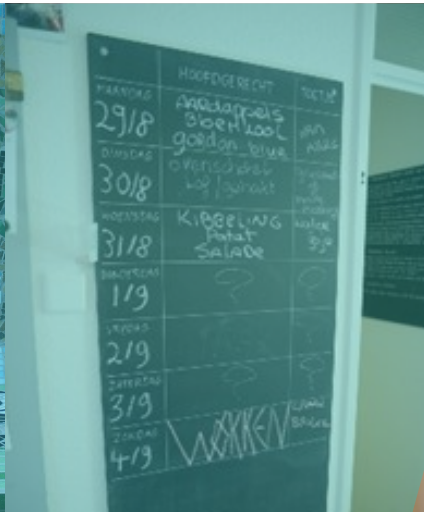 HOOFDGERECHT TOETJE
MAANDAG
29/8
Aardappels
Bloemkool
gordon bleue
VAN
ALLES
DINSDAG
30/8
ovenschotel
kip/gehakt
WOENSDAG
31/8
KIBBELING
Patat
SALADE
DONDERDAG
1/9
?
?
VRIJDAG
2/9
ZATERDAG
3/9
?
?
ZONDAG
4/9
WOKKEN